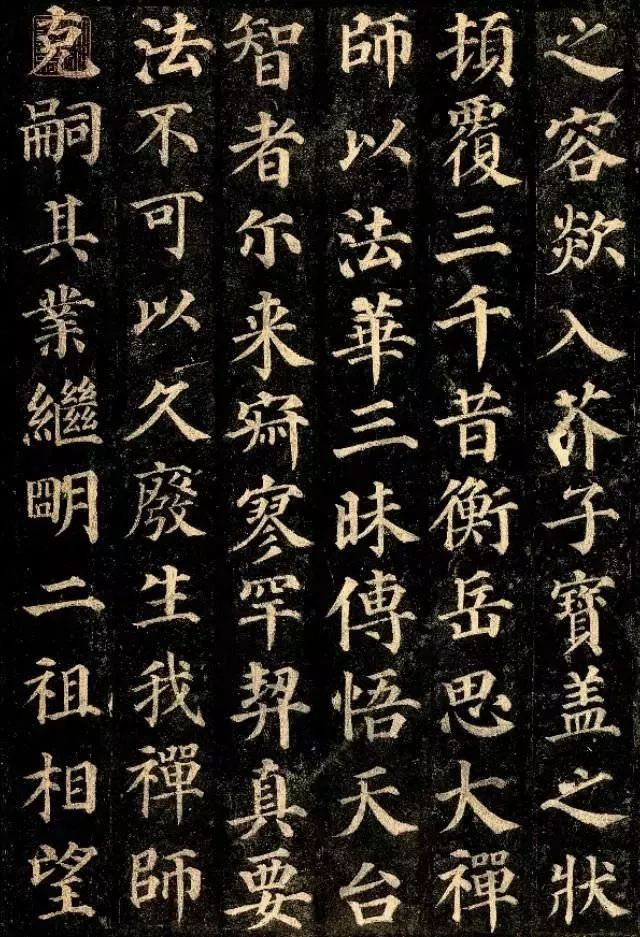 之容欻入芥子寳盖之狀
頂覆三千昔衡岳思大禪
師以法華三昧傳悟天台
智者尓来寂寥罕契真要
法不可以久廢生我禪師
克嗣其業繼明二祖相望